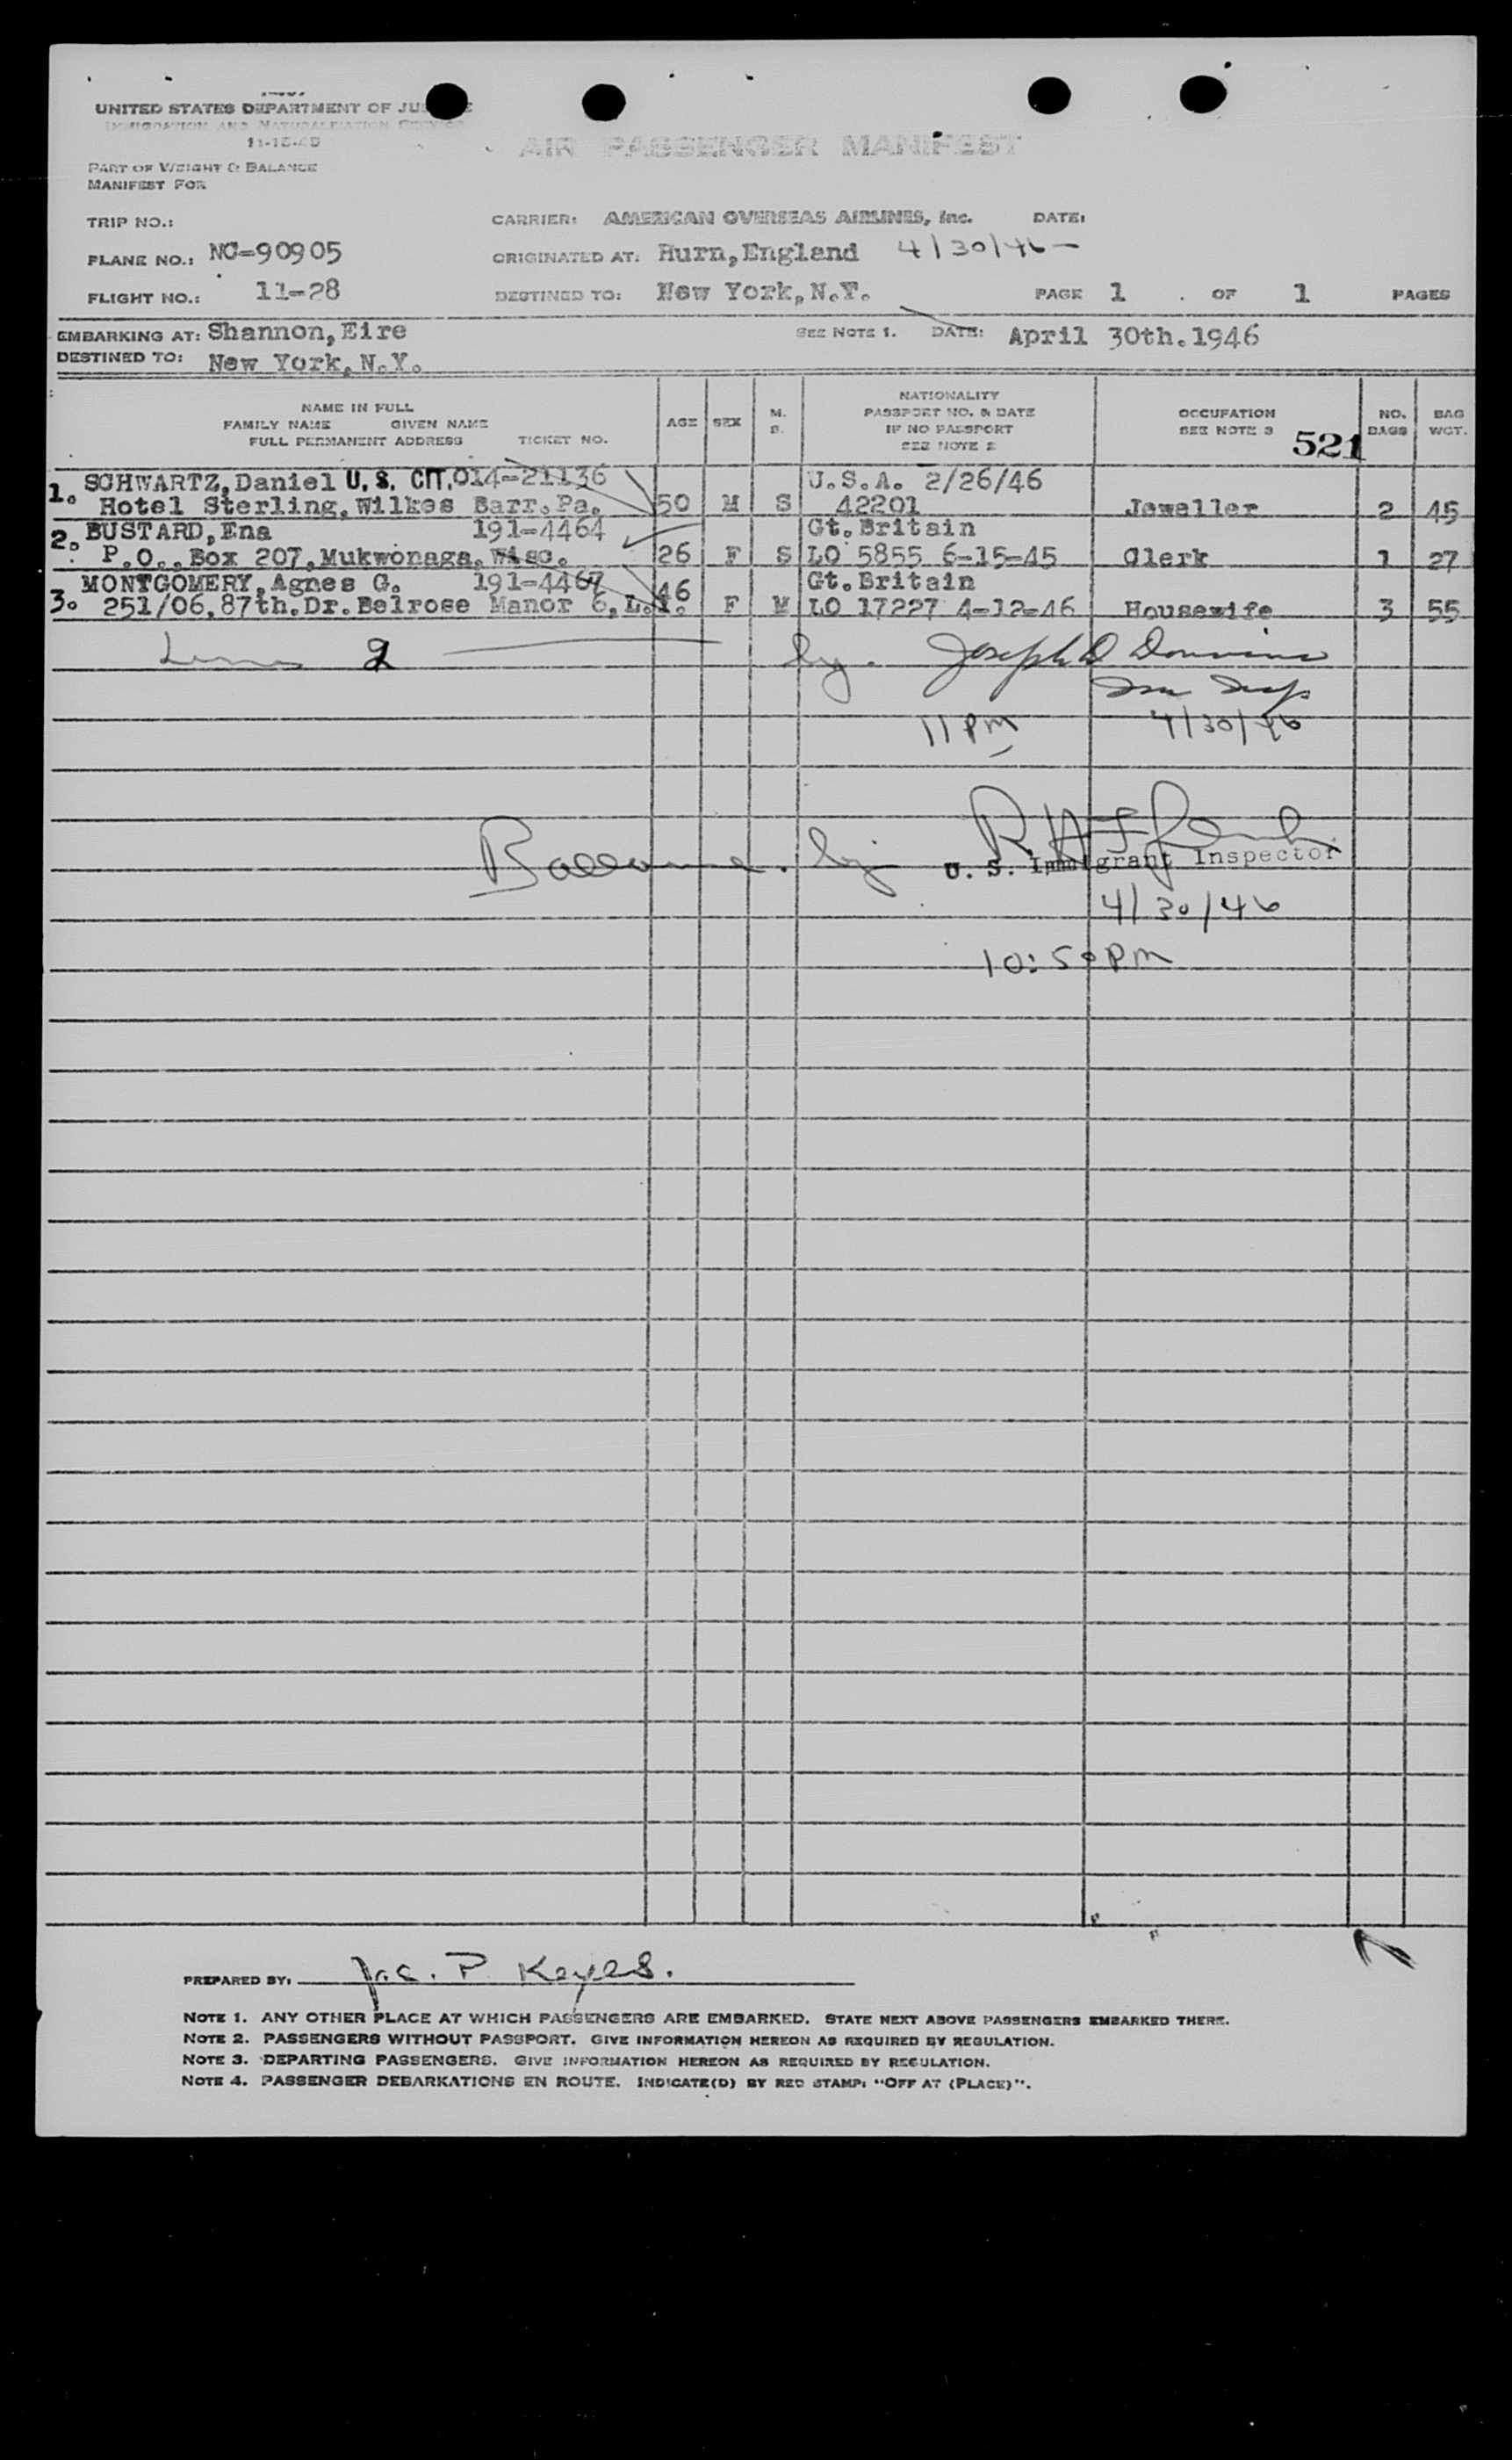 UNITED STATES DEPARTMENT OF JUSTICE
IMMIGRATION AND NATURALIZATION SERVICE
11-15-45
AIR PASSENGER MANIFEST
PART OF WEIGHT & BALANCE
MANIFEST FOR
TRIP NO.: CARRIER: AMERICAN OVERSEAS AIRLINES, Inc. DATE:
PLANE NO.: NC-90905 ORIGINATED AT: Hurn, England 4/30/46
FLIGHT NO.: 11-28 DESTINED TO: New York, N.Y. PAGE 1 OF 1 PAGES
EMBARKING AT: Shannon, Eire SEE NOTE 1. DATE: April 30th. 1946
DESTINED TO: New York, N.Y.
NAME IN FULL
FAMILY NAME GIVEN NAME
FULL PERMANENT ADDRESS TICKET NO.
AGE SEX M. S.
NATIONALITY
PASSPORT NO. & DATE
IF NO PASSPORT
SEE NOTE 2
OCCUPATION
SEE NOTE 3
521
NO. BAGS
BAG WGT.
1. SCHWARTZ, Daniel U. S. CIT. 014-21136 U.S.A. 2/26/46
Hotel Sterling, Wilkes Barr. Pa. 50 M S 42201 Jeweller 2 45
2. BUSTARD, Ena 191-4464 Gt. Britain
P.O., Box 207, Mukwonaga, Wisc. 26 F S LO 5855 6-15-45 Clerk 1 27
3. MONTGOMERY, Agnes G. 191-4467 Gt. Britain
251/06, 87th. Dr. Belrose Manor 6, L.I. 46 F M LO 17227 4-12-46 Housewife 3 55
2 by. Joseph D
Imm Insp
11 PM 4/30/46
by
U. S. Immigrant Inspector
4/30/46
10:50 PM
PREPARED BY: P Keyes.
NOTE 1. ANY OTHER PLACE AT WHICH PASSENGERS ARE EMBARKED. STATE NEXT ABOVE PASSENGERS EMBARKED THERE.
NOTE 2. PASSENGERS WITHOUT PASSPORT. GIVE INFORMATION HEREON AS REQUIRED BY REGULATION.
NOTE 3. DEPARTING PASSENGERS. GIVE INFORMATION HEREON AS REQUIRED BY REGULATION.
NOTE 4. PASSENGER DEBARKATIONS EN ROUTE. INDICATE(D) BY RED STAMP: "OFF AT (PLACE)".